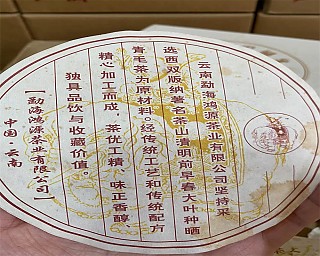 云南勐海鸿源茶业有限公司坚持采
选西双版纳著名茶山清明前早春大叶种晒
青毛茶为原材料。经传统工艺和传统配方
精心加工而成，茶优工精，味正香醇，
独具品饮与收藏价值。
【勐海鸿源茶业有限公司】
中国·云南